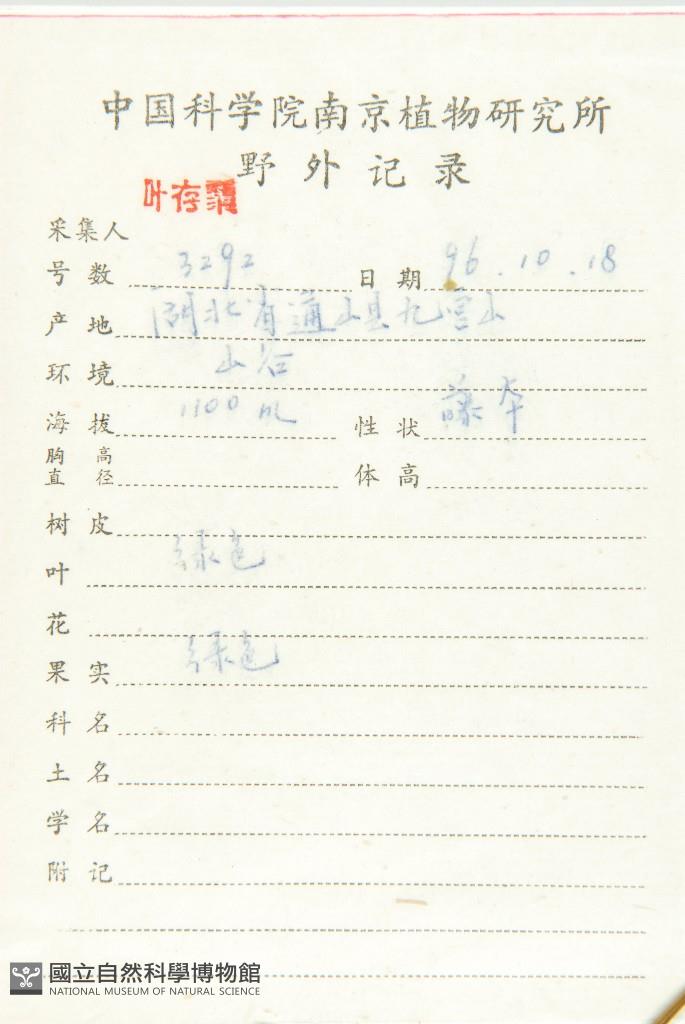 中国科学院南京植物研究所
野外记录
叶存粟
采集人
号数 3292 日期 96.10.18
产地 湖北省通山县九宫山
环境 山谷
海拔 1100 m 性状 藤本
胸高直径 体高
树皮
叶 绿色
花
果实 绿色
科名
土名
学名
附记
國立自然科學博物館
NATIONAL MUSEUM OF NATURAL SCIENCE